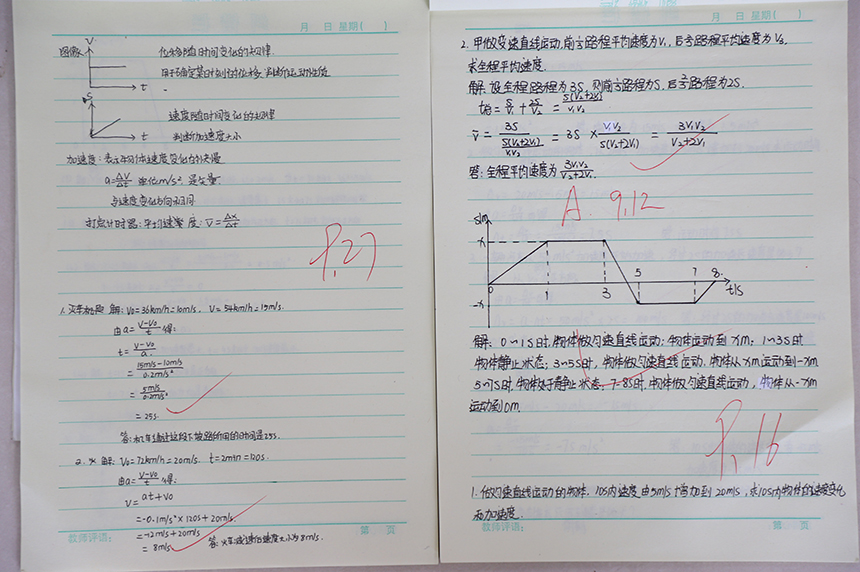 月 日 星期( )
图像: V
位移随时间变化的规律
用于确定某时刻对应位移, 判断运动性质
t
S
速度随时间变化的规律
判断加速度大小
t
加速度: 表示物体速度变化的快慢
a=ΔV/Δt 单位m/s² 是矢量.
与速度变化方向相同
打点计时器: 平均速度: V̄=Δx/Δt
P.27
1. 汽车标题 解: V₀=36km/h=10m/s, V=54km/h=15m/s.
由a=(V-V₀)/t得:
t=(V-V₀)/a.
=(15m/s-10m/s)/0.2m/s²
=5m/s/0.2m/s²
=25s.
答: 通过这段下坡路所用的时间是25s.
2. 解: V₀=72km/h=20m/s. t=2min=120s.
由a=(V-V₀)/t得:
V=at+V₀
=-0.1m/s²×120s+20m/s.
=-12m/s+20m/s
=8m/s
答: 火车减速后速度大小为8m/s.
教师评语: 第 页
月 日 星期( )
2. 甲做变速直线运动,前⅓路程平均速度为V₁, 后⅔路程平均速度为V₂.
求全程平均速度.
解: 设全程路程为3S, 则前⅓路程为S, 后⅔路程为2S.
t总=S/V₁+2S/V₂=S(V₂+2V₁)/V₁V₂
V̄=3S/(S(V₂+2V₁)/V₁V₂)=3S×V₁V₂/S(V₂+2V₁)=3V₁V₂/(V₂+2V₁)
答: 全程平均速度为3V₁V₂/(V₂+2V₁).
A. 9.12
s/m
x
0 1 3 5 7 8 t/s
-x
解: 0~1S时,物体做匀速直线运动; 物体运动到xm; 1~3S时
物体静止状态; 3~5S时, 物体做匀速直线运动. 物体从xm运动到-xm
5~7S时,物体处于静止状态, 7-8S时, 物体做匀速直线运动, 物体从-xm
运动到0m.
P.16
1. 做匀速直线运动的物体. 10S内速度由5m/s增加到20m/s, 求10s内物体的速度变化
和加速度.
教师评语: 第 页